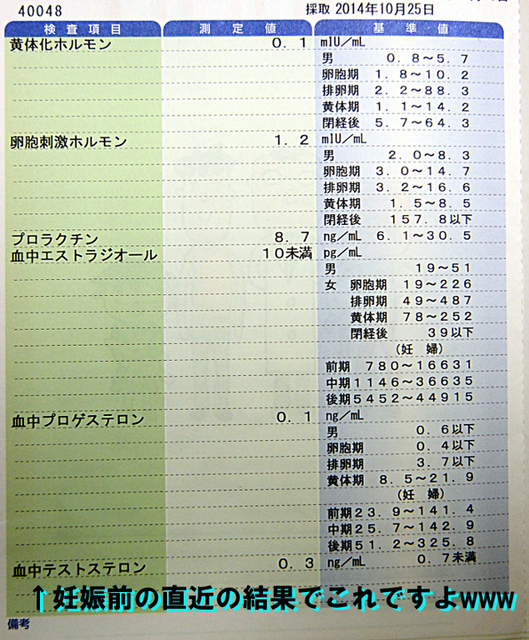 40048 採取 2014年10月25日
検査項目 測定値 基準値
黄体化ホルモン 0.1 mIU/mL
男 0.8~5.7
卵胞期 1.8~10.2
排卵期 2.2~88.3
黄体期 1.1~14.2
閉経後 5.7~64.3
卵胞刺激ホルモン 1.2 mIU/mL
男 2.0~8.3
卵胞期 3.0~14.7
排卵期 3.2~16.6
黄体期 1.5~8.5
閉経後 157.8以下
プロラクチン 8.7 ng/mL 6.1~30.5
血中エストラジオール 10未満 pg/mL
男 19~51
女 卵胞期 19~226
排卵期 49~487
黄体期 78~252
閉経後 39以下
(妊 婦)
前期 780~16631
中期1146~36635
後期5452~44915
血中プロゲステロン 0.1 ng/mL
男 0.6以下
卵胞期 0.4以下
排卵期 3.7以下
黄体期 8.5~21.9
(妊 婦)
前期23.9~141.4
中期25.7~142.9
後期51.2~325.8
血中テストステロン 0.3 ng/mL 0.7未満
↑妊娠前の直近の結果でこれですよwww
備考